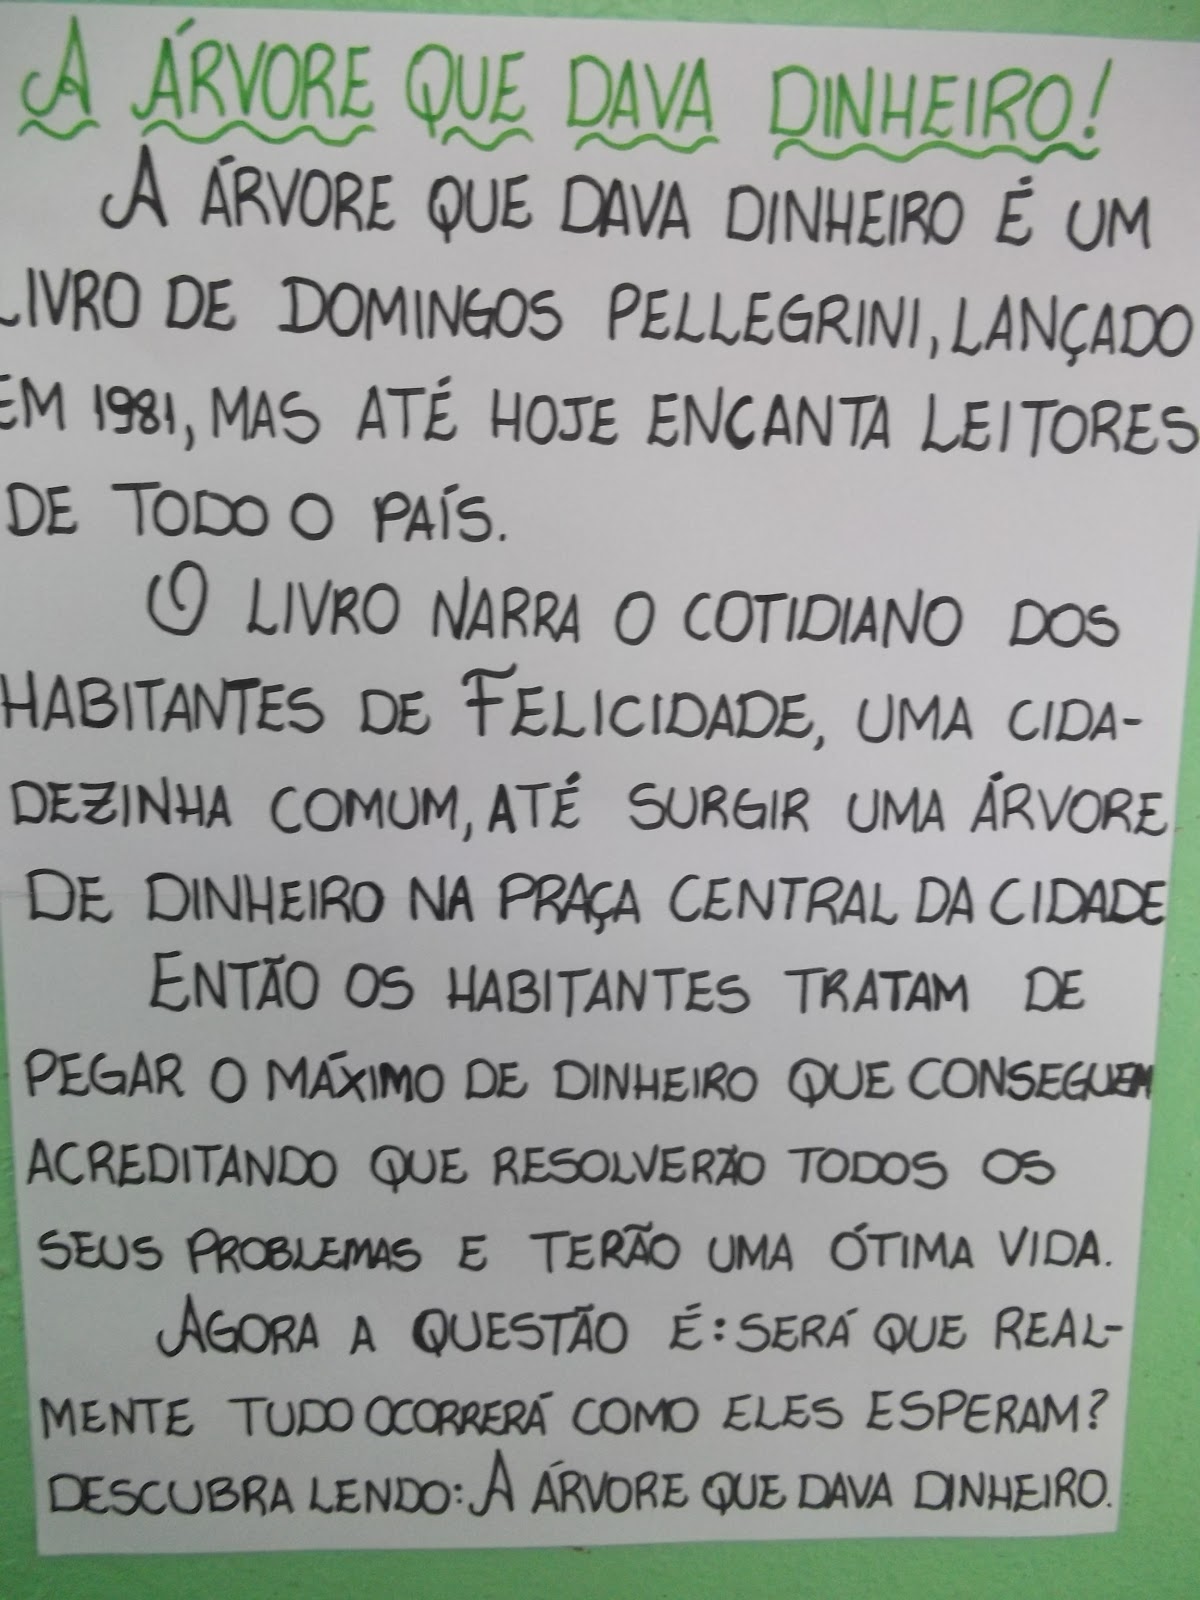 A ÁRVORE QUE DAVA DINHEIRO!
A ÁRVORE QUE DAVA DINHEIRO É UM
LIVRO DE DOMINGOS PELLEGRINI, LANÇADO
EM 1981, MAS ATÉ HOJE ENCANTA LEITORES
DE TODO O PAÍS.
O LIVRO NARRA O COTIDIANO DOS
HABITANTES DE FELICIDADE, UMA CIDA-
DEZINHA COMUM, ATÉ SURGIR UMA ÁRVORE
DE DINHEIRO NA PRAÇA CENTRAL DA CIDADE
ENTÃO OS HABITANTES TRATAM DE
PEGAR O MÁXIMO DE DINHEIRO QUE CONSEGUEM
ACREDITANDO QUE RESOLVERÃO TODOS OS
SEUS PROBLEMAS E TERÃO UMA ÓTIMA VIDA.
AGORA A QUESTÃO É: SERÁ QUE REAL-
MENTE TUDO OCORRERÁ COMO ELES ESPERAM?
DESCUBRA LENDO: A ÁRVORE QUE DAVA DINHEIRO.